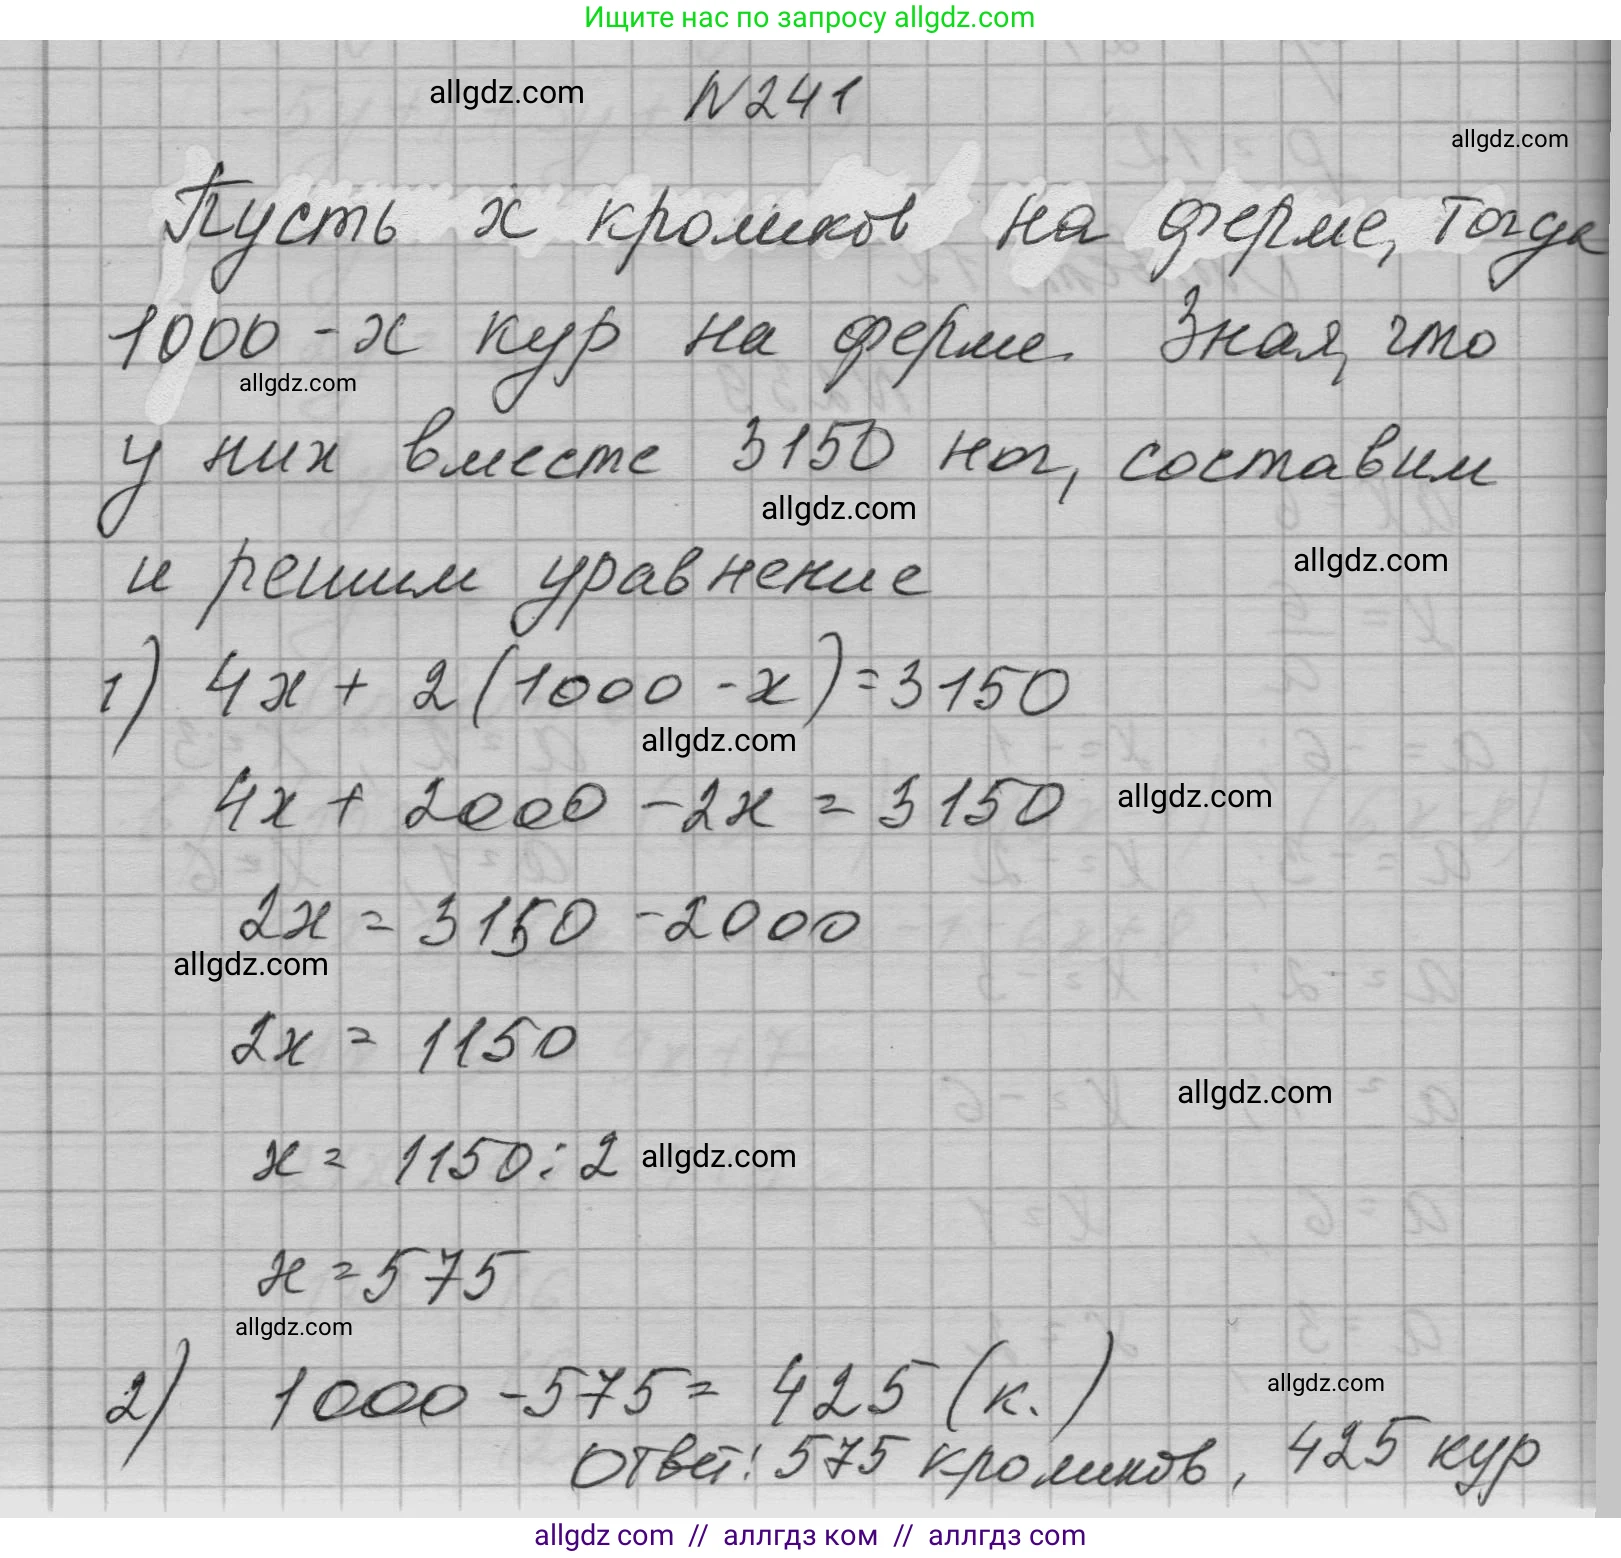 Ищите нас по запросу allgdz.com
allgdz.com
N241
allgdz.com
Пусть x кроликов на ферме, тогда
1000 - x кур на ферме. Зная, что
allgdz.com
у них вместе 3150 ног, составим
allgdz.com
и решим уравнение
allgdz.com
1) 4x + 2(1000 - x) = 3150
allgdz.com
4x + 2000 - 2x = 3150
allgdz.com
2x = 3150 - 2000
allgdz.com
2x = 1150
allgdz.com
x = 1150 : 2
allgdz.com
x = 575
allgdz.com
2) 1000 - 575 = 425 (к.)
allgdz.com
Ответ: 575 кроликов, 425 кур
allgdz com // аллгдз ком // аллгдз com